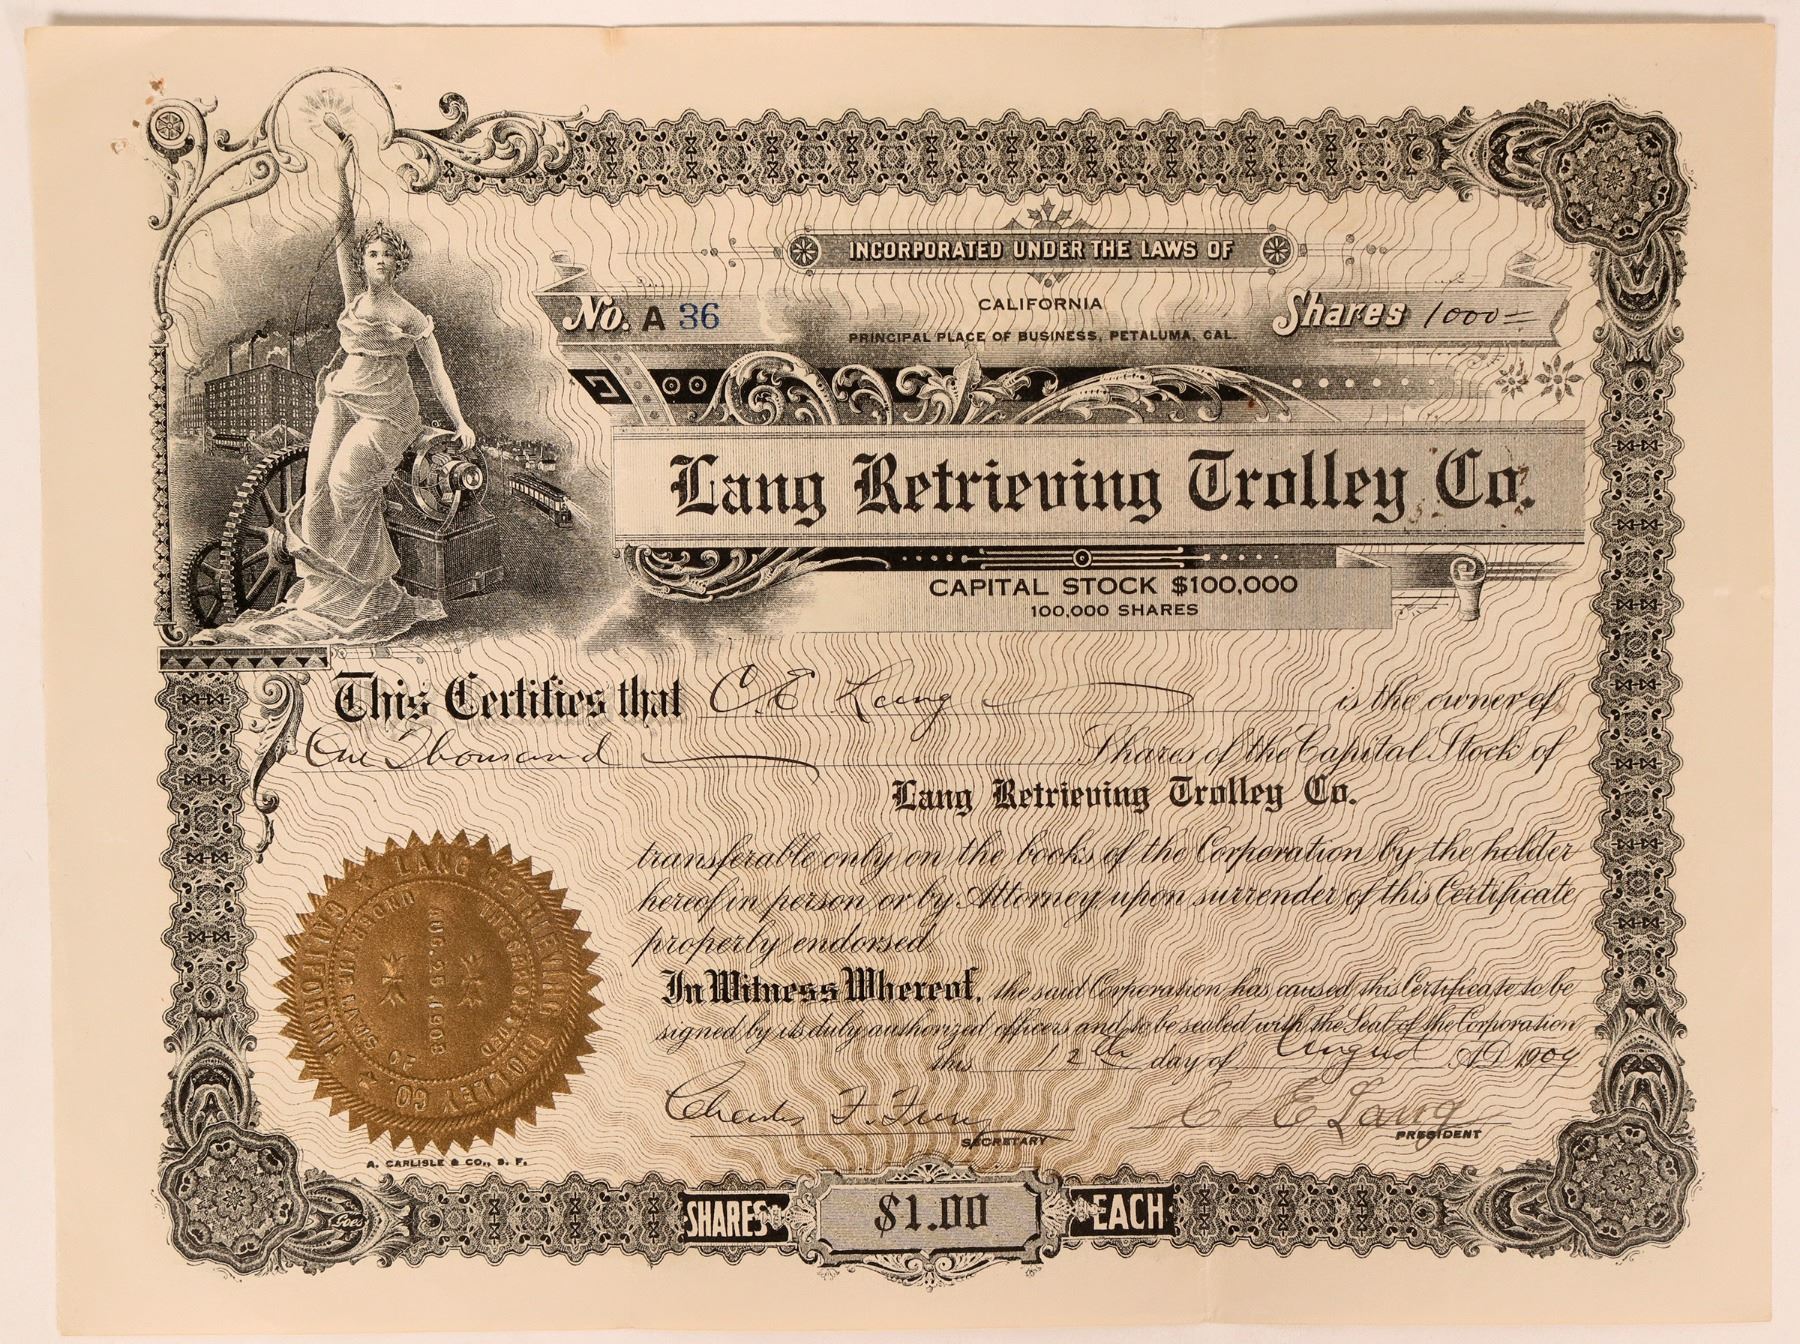 INCORPORATED UNDER THE LAWS OF
No. A 36
CALIFORNIA
Shares 1000=
PRINCIPAL PLACE OF BUSINESS, PETALUMA, CAL.
Lang Retrieving Trolley Co.
CAPITAL STOCK $100,000
100,000 SHARES
This Certifies that C. E Lang is the owner of
One Thousand Shares of the Capital Stock of
Lang Retrieving Trolley Co.
transferable only on the books of the Corporation by the holder
hereof in person or by Attorney upon surrender of this Certificate
properly endorsed
In Witness Whereof, the said Corporation has caused this Certificate to be
signed by its duly authorized officers and to be sealed with the Seal of the Corporation
this 12th day of August A.D. 1909
Charles F.
SECRETARY
C E Lang
PRESIDENT
LANG RETRIEVING TROLLEY CO.
CALIFORNIA
INCORPORATED
UNDER
AUG. 25 1908
A. CARLISLE & CO., S. F.
Goes
SHARES $1.00 EACH